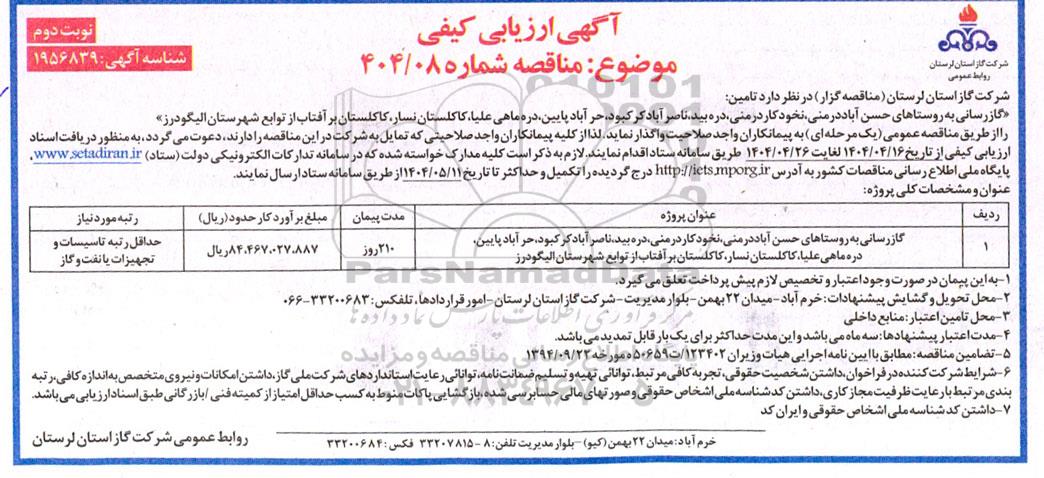 آگهی ارزیابی کیفی
موضوع: مناقصه شماره ۴۰۴/۰۸
نوبت دوم
شناسه آگهی: ۱۹۵۶۸۳۹
شرکت گاز استان لرستان
روابط عمومی
شرکت گاز استان لرستان (مناقصه گزار) در نظر دارد تامین:
«گازرسانی به روستاهای حسن آباد درمنی، نخودکار درمنی، دره بید، ناصر آباد کرکبود، حر آباد پایین، دره ماهی علیا، کاکلستان نسار، کاکلستان بر آفتاب از توابع شهرستان الیگودرز»
را از طریق مناقصه عمومی (یک مرحله ای) به پیمانکاران واجد صلاحیت واگذار نماید. لذا از کلیه پیمانکاران واجد صلاحیتی که تمایل به شرکت در این مناقصه را دارند، دعوت می گردد، به منظور دریافت اسناد
ارزیابی کیفی از تاریخ ۱۴۰۴/۰۴/۱۶ لغایت ۱۴۰۴/۰۴/۲۶ طریق سامانه ستاد اقدام نمایند. لازم به ذکر است کلیه مدارک خواسته شده که در سامانه تدارکات الکترونیکی دولت (ستاد) www.setadiran.ir،
پایگاه ملی اطلاع رسانی مناقصات کشور به آدرس http://iets.mporg.ir درج گردیده را تکمیل و حداکثر تا تاریخ ۱۴۰۴/۰۵/۱۱ از طریق سامانه ستاد ارسال نمایند.
عنوان و مشخصات کلی پروژه:
ردیف عنوان پروژه مدت پیمان مبلغ برآورد کار حدود (ریال) رتبه مورد نیاز
۱ گازرسانی به روستاهای حسن آباد درمنی، نخودکار درمنی، دره بید، ناصر آباد کرکبود، حر آباد پایین،
دره ماهی علیا، کاکلستان نسار، کاکلستان بر آفتاب از توابع شهرستان الیگودرز
۲۱۰ روز ۸۴.۴۶۷.۰۲۷.۸۸۷ ریال
حداقل رتبه تاسیسات و
تجهیزات یا نفت و گاز
۱-به این پیمان در صورت وجود اعتبار و تخصیص لازم پیش پرداخت تعلق می گیرد.
۲-محل تحویل و گشایش پیشنهادات: خرم آباد-میدان ۲۲ بهمن-بلوار مدیریت-شرکت گاز استان لرستان-امور قراردادها، تلفکس: ۳۳۲۰۰۶۸۳-۰۶۶
۳-محل تامین اعتبار: منابع داخلی
۴-مدت اعتبار پیشنهادها: سه ماه می باشد و این مدت حداکثر برای یک بار قابل تمدید می باشد.
۵-تضامین مناقصه: مطابق با آیین نامه اجرایی هیات وزیران ۱۲۳۴۰۲/ت۵۰۶۵۹ه مورخه ۱۳۹۴/۰۹/۲۲
۶-شرایط شرکت کننده در فراخوان، داشتن شخصیت حقوقی، تجربه کافی مرتبط، توانائی تهیه و تسلیم ضمانت نامه، توانائی رعایت استانداردهای شرکت ملی گاز، داشتن امکانات و نیروی متخصص به اندازه کافی، رتبه
بندی مرتبط با رعایت ظرفیت مجاز کاری، داشتن کد شناسه ملی اشخاص حقوقی و صورتهای مالی حسابرسی شده، بازگشایی پاکات منوط به کسب حداقل امتیاز از کمیته فنی/بازرگانی طبق اسناد ارزیابی می باشد.
۷-داشتن کد شناسه ملی اشخاص حقوقی و ایران کد
خرم آباد: میدان ۲۲ بهمن (کیو)-بلوار مدیریت تلفن: ۸-۳۳۲۰۷۸۱۵ فکس: ۳۳۲۰۰۶۸۴
روابط عمومی شرکت گاز استان لرستان
ParsNamadData